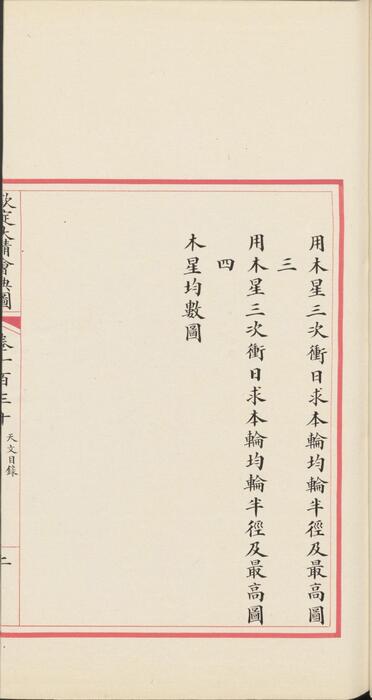 用木星三次衝日求本輪均輪半徑及最高圖
三
用木星三次衝日求本輪均輪半徑及最高圖
四
木星均數圖
欽定大清會典圖
卷一百三十
天文目錄
二